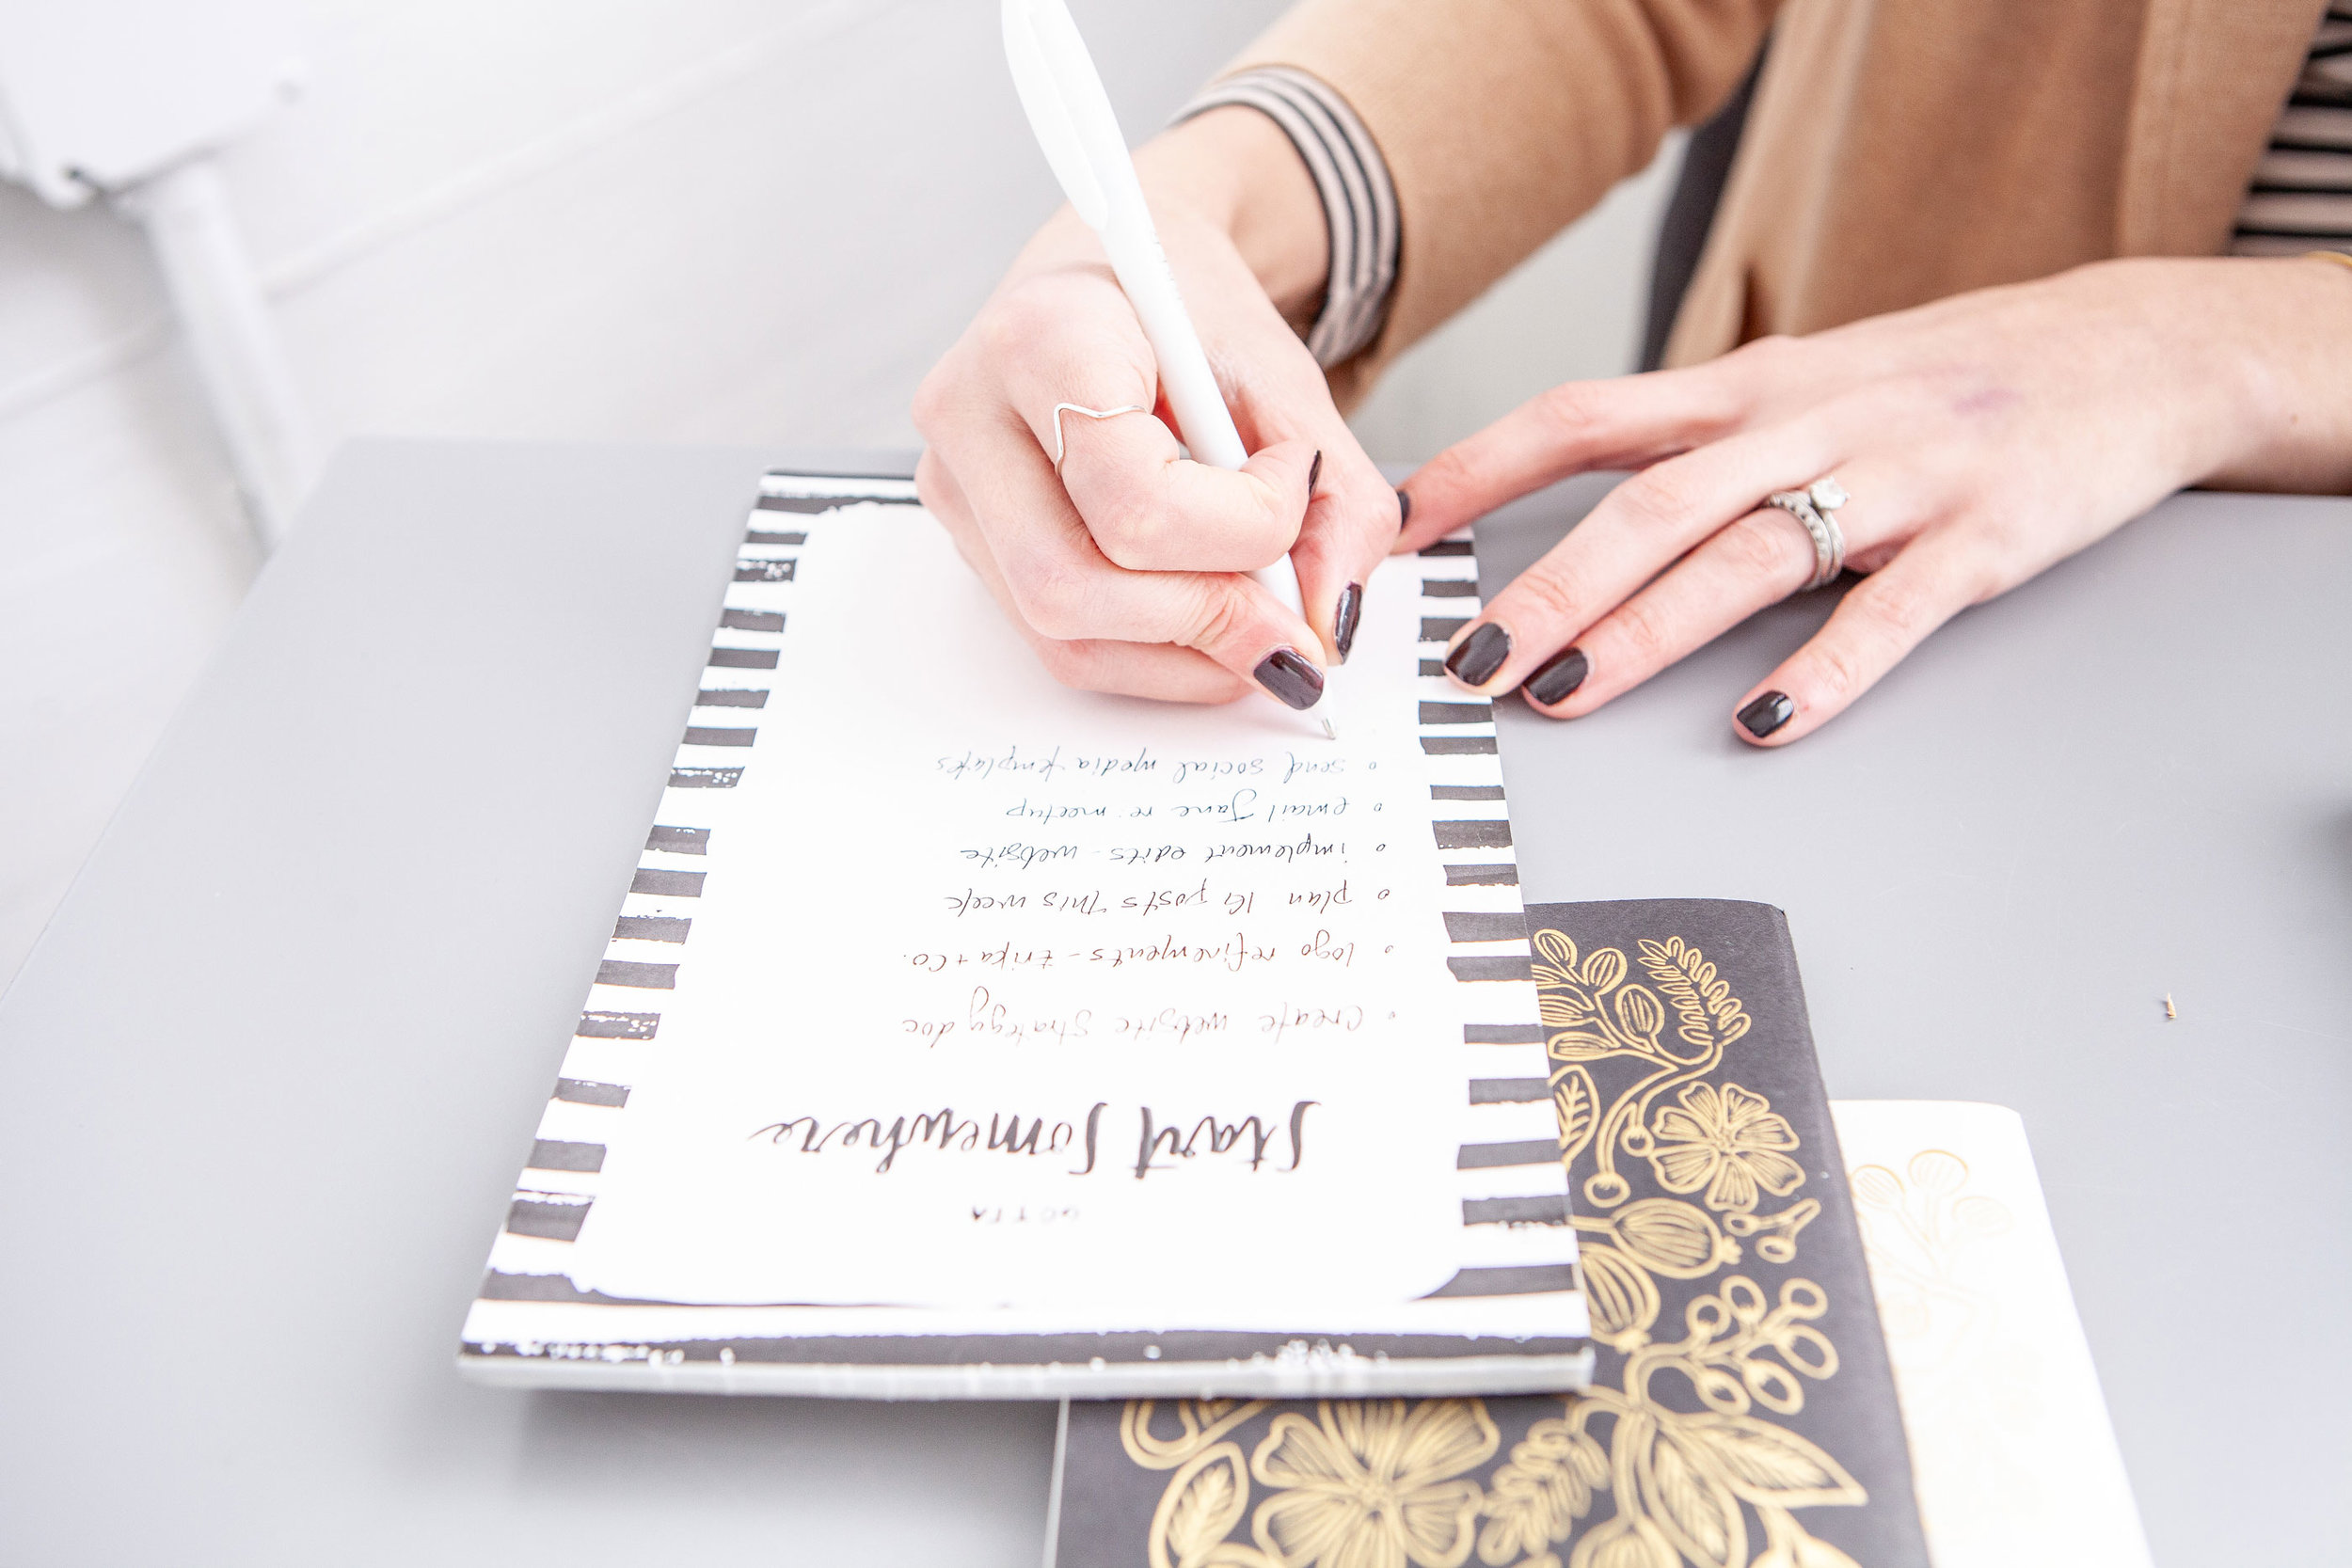 GOTTA
Start Somewhere
Create website strategy doc
logo refinements - Erika + Co.
plan IG posts this week
implement edits - website
email Jane re: meetup
send social media templates